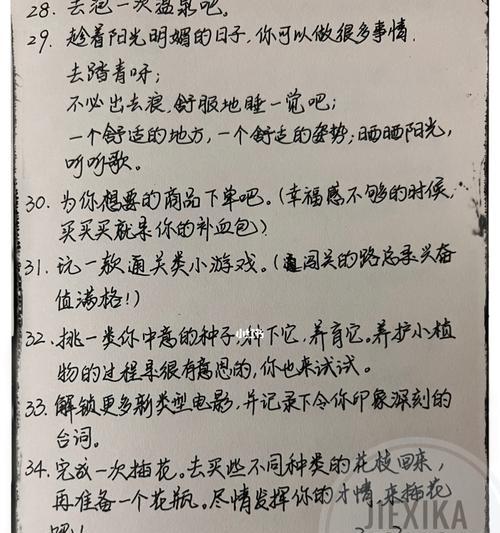 28. 去泡一次温泉吧。
29. 趁着阳光明媚的日子,你可以做很多事情.
去踏青呀;
不必出去浪,舒服地睡一觉吧;
一个舒适的地方,一个舒适的姿势;晒晒阳光,
听听歌。
30. 为你想要的商品下单吧。(幸福感不够的时候,
买买买就是你的补血包)
31. 玩一款通关类小游戏。(闯关的路总是兴奋
值满格!)
32. 挑一类你中意的种子,种下它,养育它。养护小植
物的过程是很有意思的,你也来试试。
33. 解锁更多新类型电影,并记录下令你印象深刻的
台词。
34. 完成一次插花。去买些不同种类的花枝回来,
再准备一个花瓶。尽情发挥你的才情,来插花
吧!
小红书
JIEXIKA